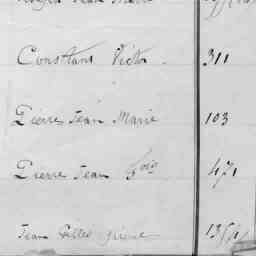 Jean Marie
Constant Victor 311
Pierre Jean Marie 103
Pierre Jean fois 471
Jean Gilles